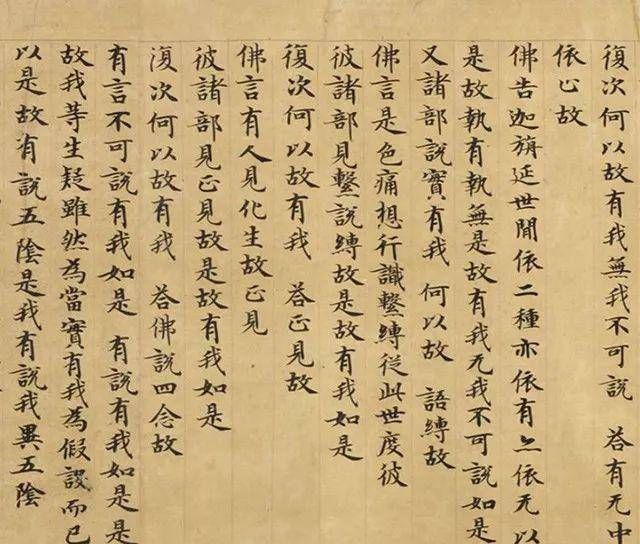 復次何以故有我無我不可說 荅有无中
依止故
佛告迦旃延世間依二種亦依有亦依无以
是故執有執無是故有我无我不可說如是
又諸部說實有我 何以故 語縛故
佛言是色痛想行識繫縛從此世度彼
彼諸部見繫說縛故是故有我如是
復次何以故有我 荅正見故
佛言有人見化生故正見
彼諸部見正見故是故有我如是
復次何以故有我 荅佛說四念故
有言不可說有我如是 有說有我如是是
故我等生疑雖然為當實有我為假設而已
以是故有說五陰是我有說我異五陰